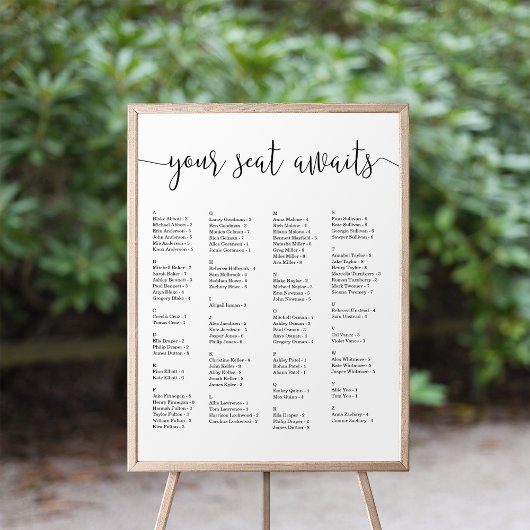 your seat awaits
A
Blake Abbott - 2
Michael Abbott - 2
Erin Anderson - 3
John Anderson - 3
Mia Anderson - 3
Knox Anderson - 3
B
Mitchell Baker - 7
Sarah Baker - 7
Ashley Bennett - 2
Paul Bennett - 3
Anya Blake - 4
Gregory Blake - 4
C
Camila Cruz - 1
Tomas Cruz - 2
D
Ella Draper - 2
Philip Draper - 2
James Dutton - 8
E
Finn Elliott - 8
Kate Elliott - 8
F
Jake Finnegan - 8
Henry Finnegan - 8
Hannah Fulton - 2
Taylor Fulton - 3
William Fulton - 2
Kira Fulton - 2
G
Laney Goodman - 2
Ben Goodman - 2
Monica Gelman - 7
Rich Gelman - 7
Alice Goranson - 1
Jamie Goranson - 6
H
Rebecca Holbrook - 4
Sam Holbrook - 3
Siobhan Howe - 6
Zachary Howe - 6
I
Abigail Inman - 3
J
Alex Jacobsen - 2
Kate Jacobsen - 5
Jasper Jones - 6
Philip Jones - 6
K
Christine Keller - 5
John Keller - 5
Abby Keller - 5
Jonah Keller - 5
James Kpler - 2
L
Allie Lawrence - 4
Tom Lawrence - 4
Harrison Lockwood - 2
Caroline Lockwood - 2
M
Anna Malone - 4
Rich Malone - 4
Eliana Malone - 4
Bennett Mayfield - 3
Natasha Miller - 6
Greg Miller - 8
Miles Miller - 8
Ava Miller - 8
N
Blake Naylor - 2
Michael Naylor - 2
Erin Newman - 3
John Newman - 5
O
Mitchell Osman - 7
Ashley Osman - 3
Paul Osman - 3
Anya Osman - 4
Gregory Osman - 4
P
Ashley Patel - 1
Rohan Patel - 1
Aliana Patel - 1
Q
Emiley Quinn - 4
Max Quinn - 4
R
Ella Draper - 2
Philip Draper - 2
James Dutton - 8
S
Finn Sullivan - 6
Kate Sullivan - 6
Georgia Sullivan - 6
Sawyer Sullivan - 6
T
Annabel Taylor - 8
Jake Taylor - 8
Henry Taylor - 8
Marcella Turnberry - 3
Roman Turnberry - 2
Mark Twomey - 7
Sienna Twomey - 7
U
Rebecca Unstead - 4
Sam Unstead - 4
V
Cal Vance - 3
Violet Vance - 3
W
Alex Whitmore - 5
Kate Whitmore - 5
Jasper Whitmore - 5
Y
Allie Yoo - 1
Tom Yoo - 1
Z
Anna Zachary - 4
Connor Zachary - 4